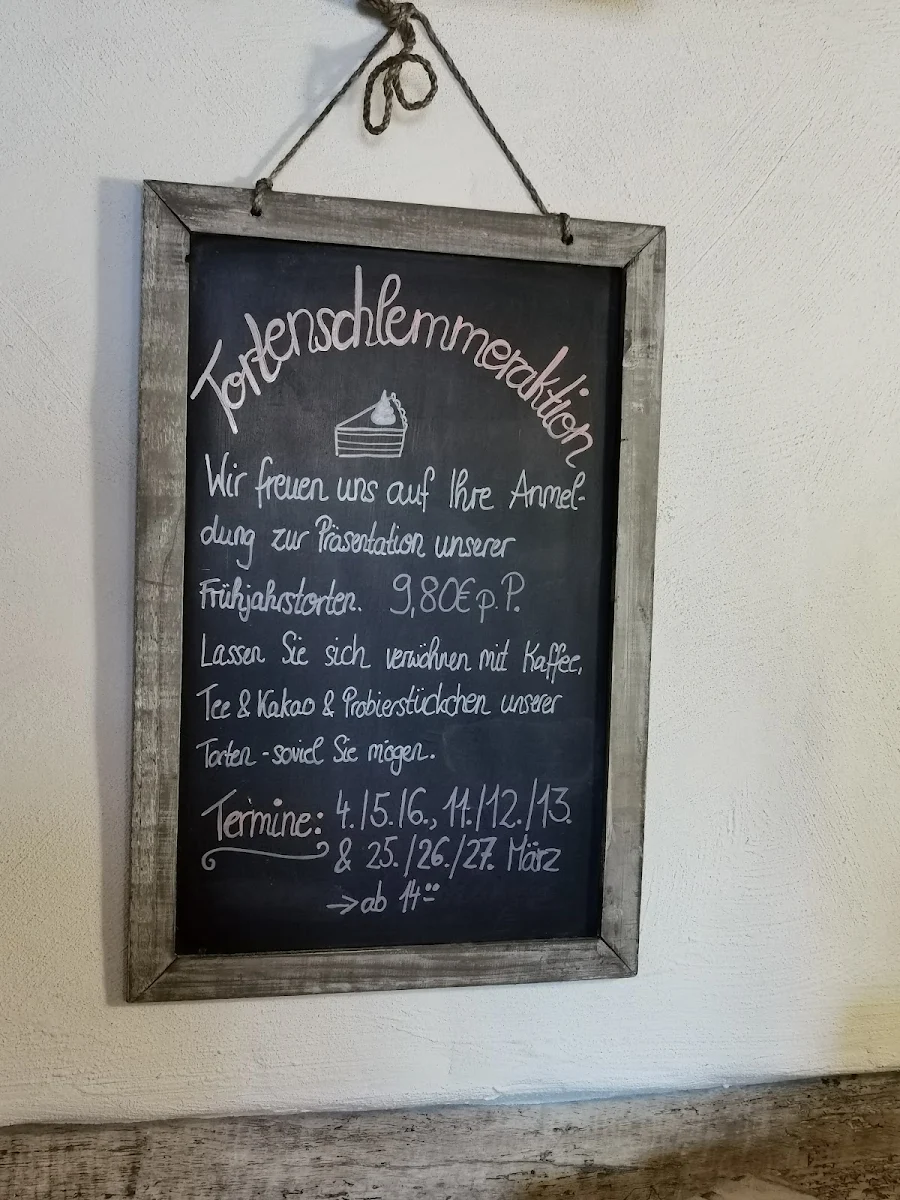 Tortenschlemmeraktion
Wir freuen uns auf Ihre Anmel-
dung zur Präsentation unserer
Frühjahrstorten. 9,80€ p.P.
Lassen Sie sich verwöhnen mit Kaffee,
Tee & Kakao & Probierstückchen unserer
Torten - soviel Sie mögen.
Termine: 4./5./6., 11./12./13.
& 25./26./27. März
→ ab 14⁰⁰